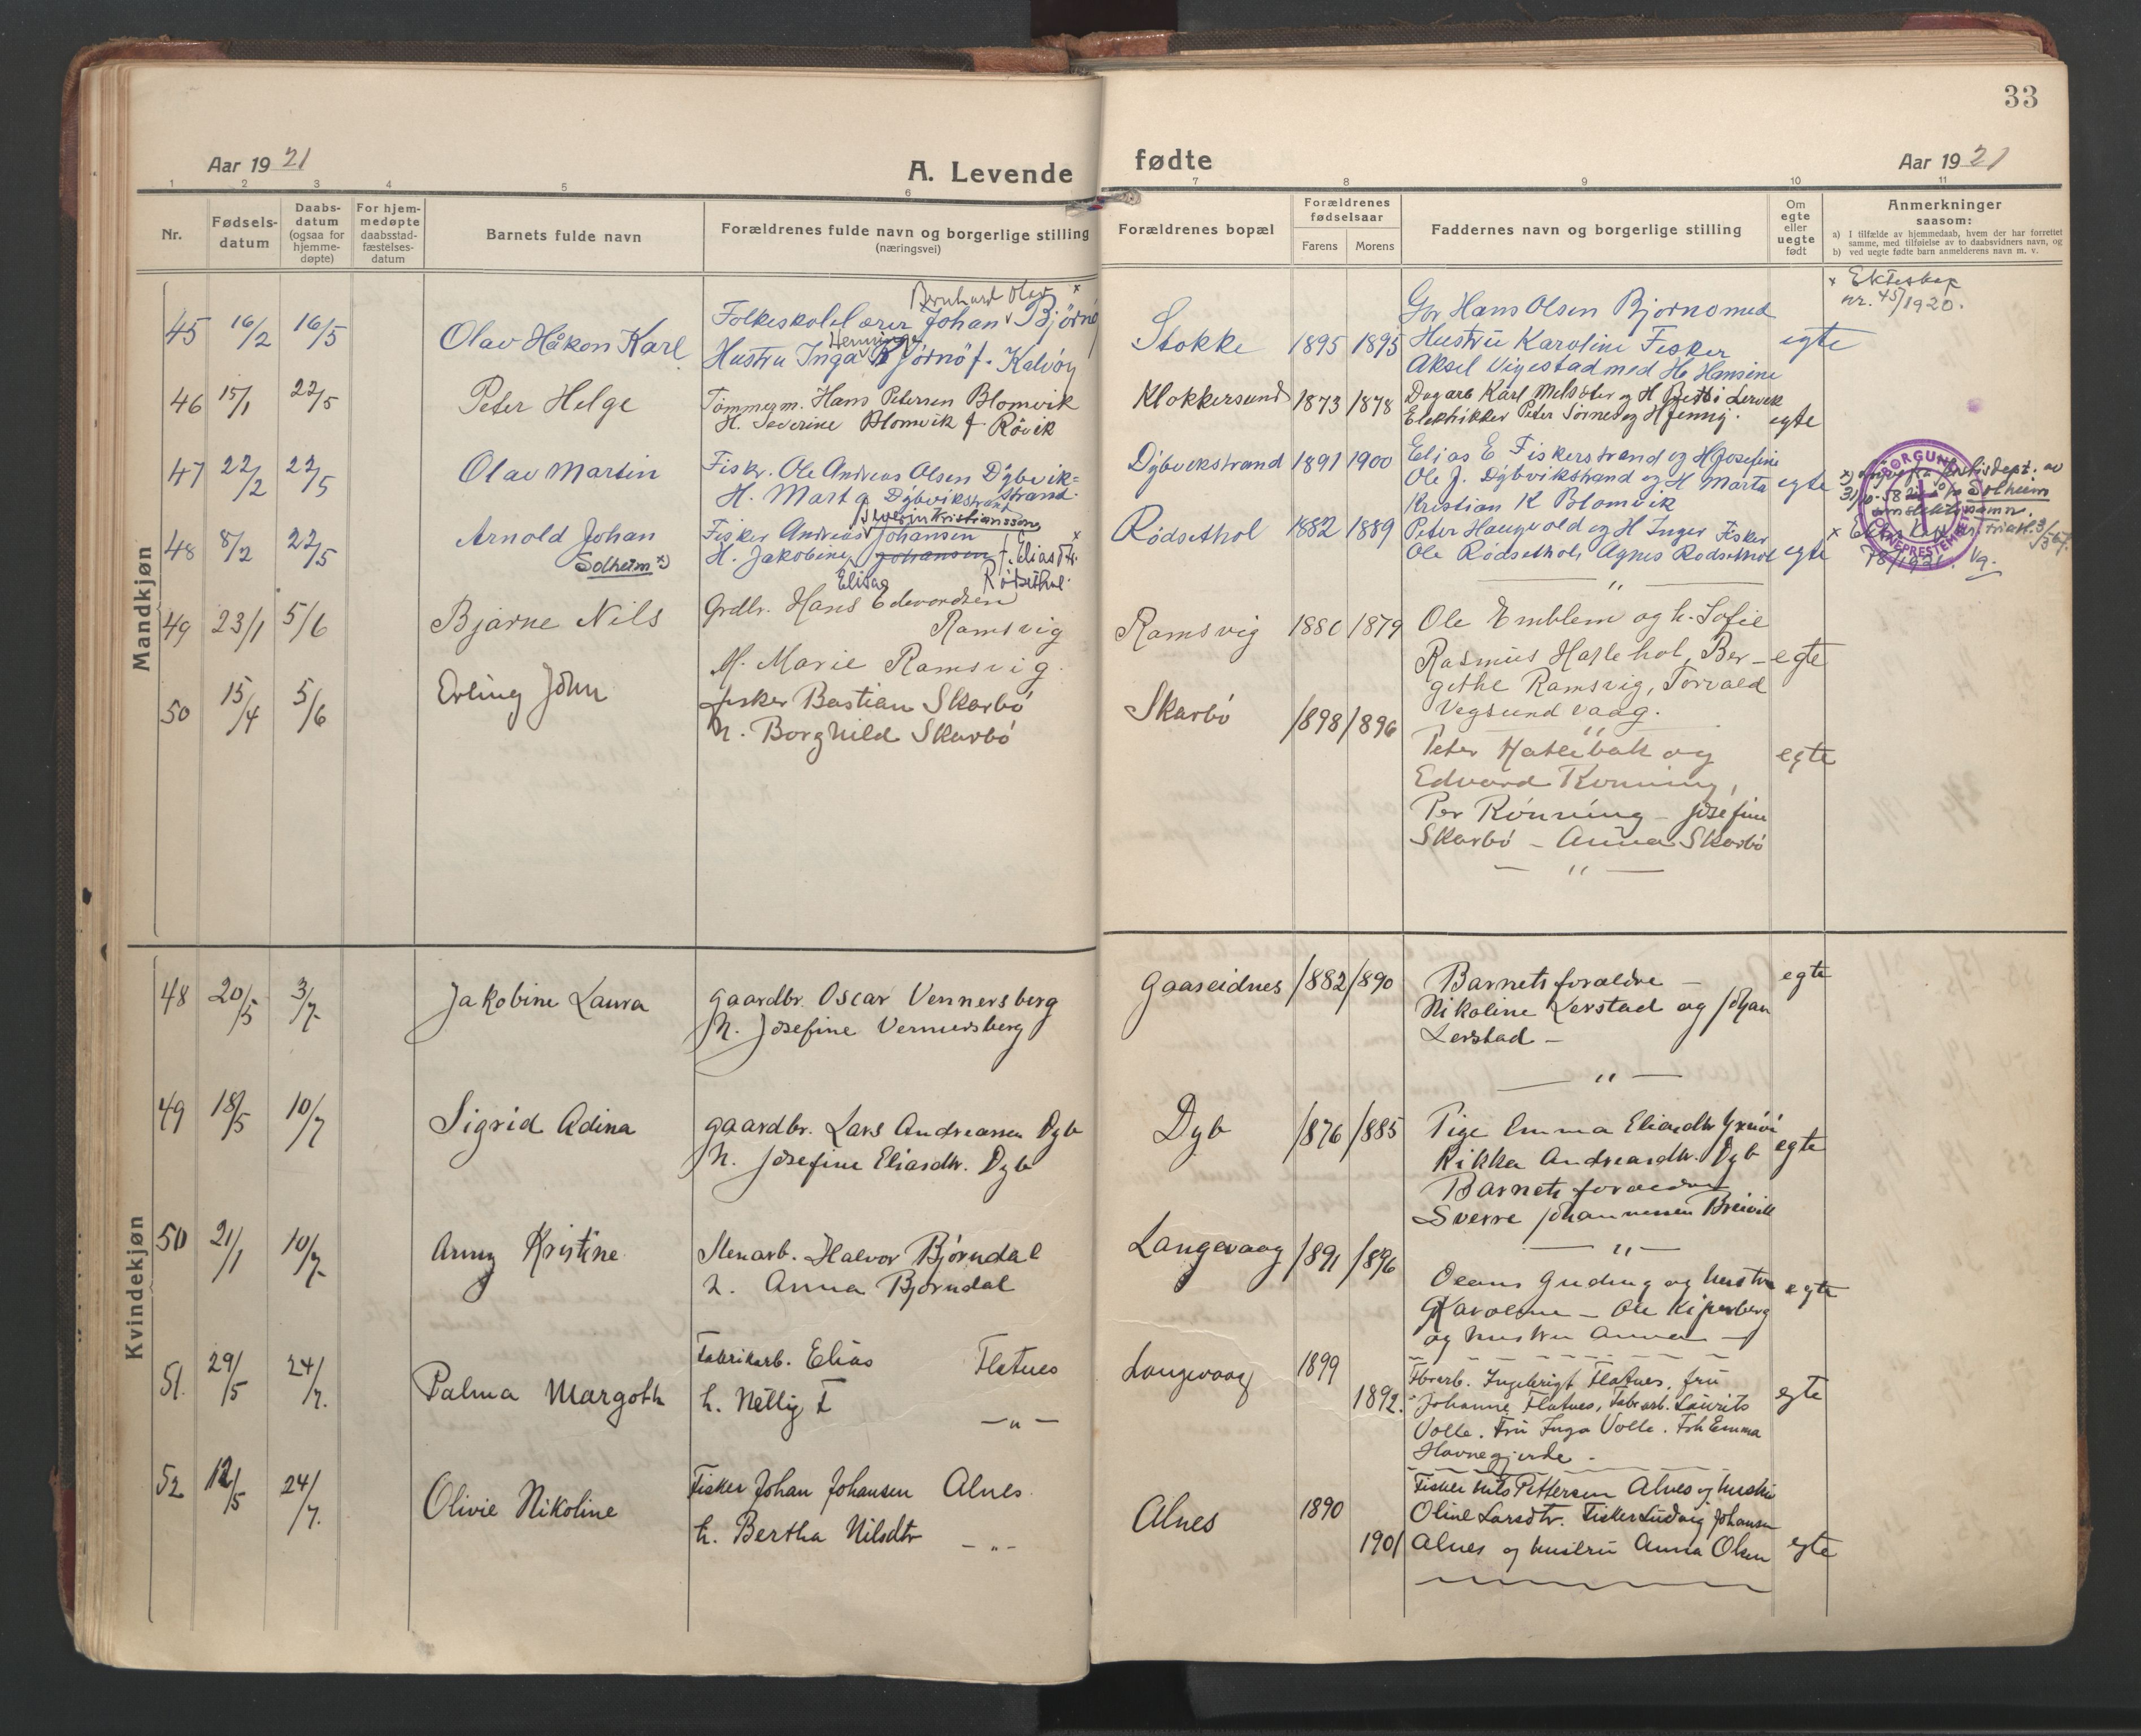 33
Aar 1921
A. Levende
fødte
Aar 1921
1 2 3 4 5 6
7 8 9 10 11
Nr.
Fødsels-
datum
Daabs-
datum
(ogsaa for
hjemme-
døpte)
For hjem-
medøpte
daabsstad-
fæstelses-
datum
Barnets fulde navn
Forældrenes fulde navn og borgerlige stilling
(næringsvei)
Forældrenes bopæl
Forældrenes
fødselsaar
Farens Morens
Faddernes navn og borgerlige stilling
Om
egte
eller
uegte
født
Anmerkninger
saasom:
a) I tilfælde av hjemmedaab, hvem der har forrettet
samme, med tilføielse av to daabsvidners navn, og
b) ved uegte fødte barn anmelderens navn m. v.
Mandkjøn
45 16/2 16/5 Olav Håkon Karl
Bernhard Olav x
Folkeskolelærer Johan Bjørnö
Henninge
Hustru Inga Bjørnö f. Kalvøy
Stokke 1895 1895
Gbr Hans Olsen Bjornö med
Hustru Karoline Fisker
Aksel Vigestad med H Hansine
egte
x Ekteskap
nr. 45/1920.
46 15/1 22/5 Peter Helge
Tømmerm. Hans Petersen Blomvik
H. Severine Blomvik f. Róvik
Klokkersund 1873 1878
Dagarb Karl Melsöter og H Lervik
Elektrikker Peter Sørnes og H Jenny.
egte
47 22/2 22/5 Olav Martin
Fisk. Ole Andreas Olsen Dybvik=
strand.
H. Marta Dybvikstrand
Dybvikstrand 1891 1900
Elias E Fiskerstrand og H Josefine
Ole J. Dybvikstrand og H Marta
Kristian K Blomvik
egte
48 8/2 22/5 Arnold Johan
Solheim x)
Severin Kristiansson
Fisker Andreas Johansen x
H. Jakobine Johansen f. Eliasdtr.
Elisa Rødsethol.
Rødsethol 1882 1889
Peter Haugvold og H Inger Fisker
Ole Rødsethol, Agnes Rødsethol
egte
BORGUND
SOKNEPRESTEMBETE
Solheim
som slektsnamn.
78/1921. Vg.
49 23/1 5/6 Bjarne Nils
Grdbr. Hans Edvardsen
Ramsvig
H. Marie Ramsvig.
Ramsvig 1880 1879
Ole Emblem og h. Sofie
Rasmus Hasle hol, Ber-
gethe Ramsvig, Torvald
Vegsund vaag.
egte
50 15/4 5/6 Erling John
Fisker Bastian Skarbó
h. Borghild Skarbó
Skarbó 1898 1896
Peter Hatlebak og
Edvard Rönning,
Per Rönning - Josefine
Skarbó - Anna Skarbó
egte
Kvindekjøn
48 20/5 3/7 Jakobine Laura
gaardbr. Oscar Vennersberg
h. Josefine Vennersberg
Gaaseidnes 1882 1890
Barnets forældre -
Nikoline Lerstad og Johan
Lerstad -
egte
49 18/5 10/7 Sigrid Adina
gaardbr. Lars Andreassen Dyb
h. Josefine Eliasdtr. Dyb
Dyb 1876 1885
Pige Emma Eliasdtr
Rikka Andreasdtr. Dyb
Barnets forældre
Sverre Johannessen Breivik
egte
50 21/1 10/7 Anny Kristine
Stenarb. Halvor Björndal
h. Anna Björndal
Langevaag 1891 1896
og hustru
Karoline - Ole Kipperberg
og hustru Anna -
egte
51. 29/5 24/7. Palma Margoth
Fabrikarb. Elias Flatnes
h. Nelly F -"-
Langevaag 1899 1892.
Fbrarb. Ingebrigt Flatnes, fru
Johanne Flatnes, Fabrarb. Laurits
Volle. Fru Inga Volle. Frk Emma
Havnegjerde.
egte
52 12/5 24/7. Olivie Nikoline
Fisker Johan Johansen Alnes.
h. Bertha Nilsdtr -"-
Alnes 1890 1901
Fisker Nils Pettersen Alnes og hustru
Oline Larsdtr. Fisker Ludvig Johansen
Alnes og hustru Anna Olsen
egte